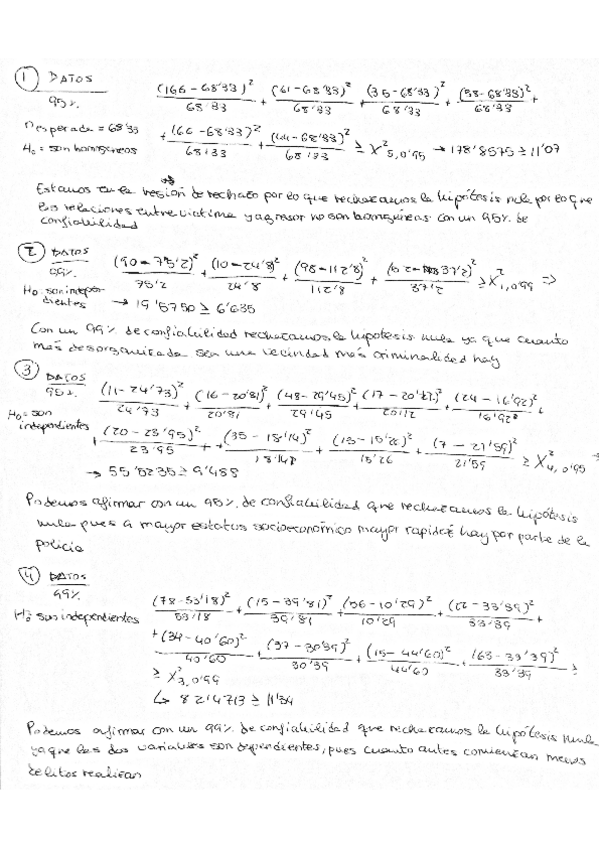 ① DATOS
95%
(166 - 68'33)² / 68'33 + (61 - 68'33)² / 68'33 + (35 - 68'33)² / 68'33 + (58 - 68'33)² / 68'33 +
n esperada = 68'33
H₀ = son homogéneos
+ (66 - 68'33)² / 68'33 + (24 - 68'33)² / 68'33 ≥ X²5,0'95 → 178'8575 ≥ 11'07
Estamos en la región de rechazo por lo que rechazamos la hipótesis nula por lo que
las relaciones entre víctima y agresor no son homogéneas con un 95% de
confiabilidad
② DATOS
99%
(90 - 75'2)² / 75'2 + (10 - 24'8)² / 24'8 + (98 - 112'8)² / 112'8 + (52 - 37'2)² / 37'2 ≥ X²1,0'99 ⇒
H₀ son indepen-
dientes → 19'5750 ≥ 6'635
Con un 99% de confiabilidad rechazamos la hipótesis nula ya que cuanto
más desorganizada sea una vecindad más criminalidad hay
③ DATOS
95%
(11 - 24'73)² / 24'73 + (16 - 20'81)² / 20'81 + (48 - 29'45)² / 29'45 + (17 - 20'12)² / 20'12 + (24 - 16'92)² / 16'92 +
H₀ = son
independientes
+ (20 - 23'95)² / 23'95 + (35 - 18'14)² / 18'14 + (13 - 15'26)² / 15'26 + (7 - 21'59)² / 21'59 ≥ X²4,0'95 →
→ 55'5235 ≥ 9'488
Podemos afirmar con un 95% de confiabilidad que rechazamos la hipótesis
nula pues a mayor estatus socioeconómico mayor rapidez hay por parte de la
policía
④ DATOS
99%
H₀ son independientes
(78 - 53'18)² / 53'18 + (15 - 39'81)² / 39'81 + (56 - 10'29)² / 10'29 + (22 - 33'39)² / 33'39 +
+ (34 - 40'60)² / 40'60 + (37 - 30'39)² / 30'39 + (15 - 44'60)² / 44'60 + (63 - 33'39)² / 33'39 ≥
≥ X²3,0'99
↳ 82'4713 ≥ 11'34
Podemos afirmar con un 99% de confiabilidad que rechazamos la hipótesis nula
ya que las dos variables son dependientes, pues cuanto antes comienzan menos
delitos realizan